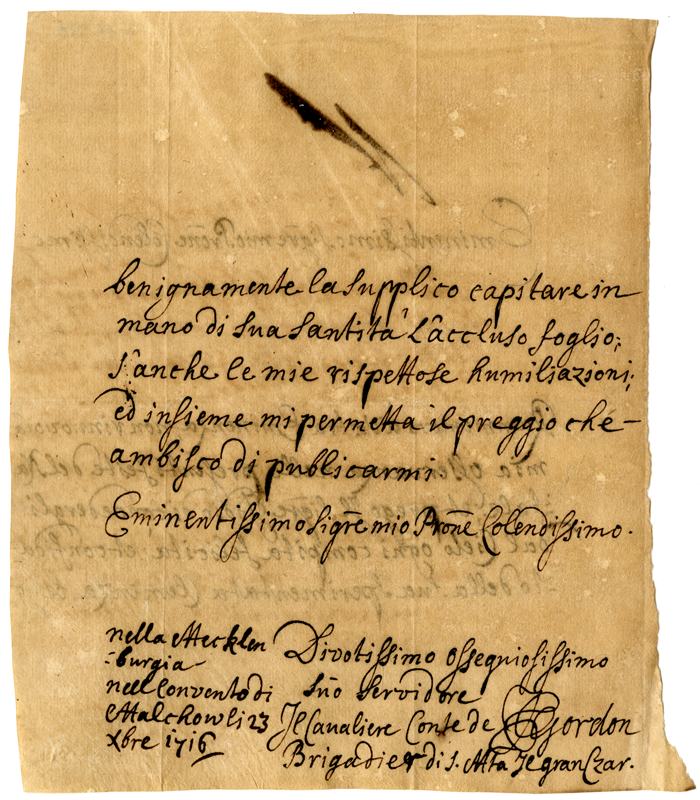 benignamente la supplico capitare in
mano di sua santità l'accluso foglio;
s'anche le mie rispettose humiliazioni;
ed insieme mi permetta il preggio che
ambisco di publicarmi
Eminentissimo Sigre mio Prone Colendissimo.
nella Mecklen
-burgia
nell Convento di
Malchow li 23
Xbre 1716
Divotissimo ossequiosissimo
suo servidore
Il Cavaliere Conte de Gordon
Brigadier di S. Mta Il gran Czar.